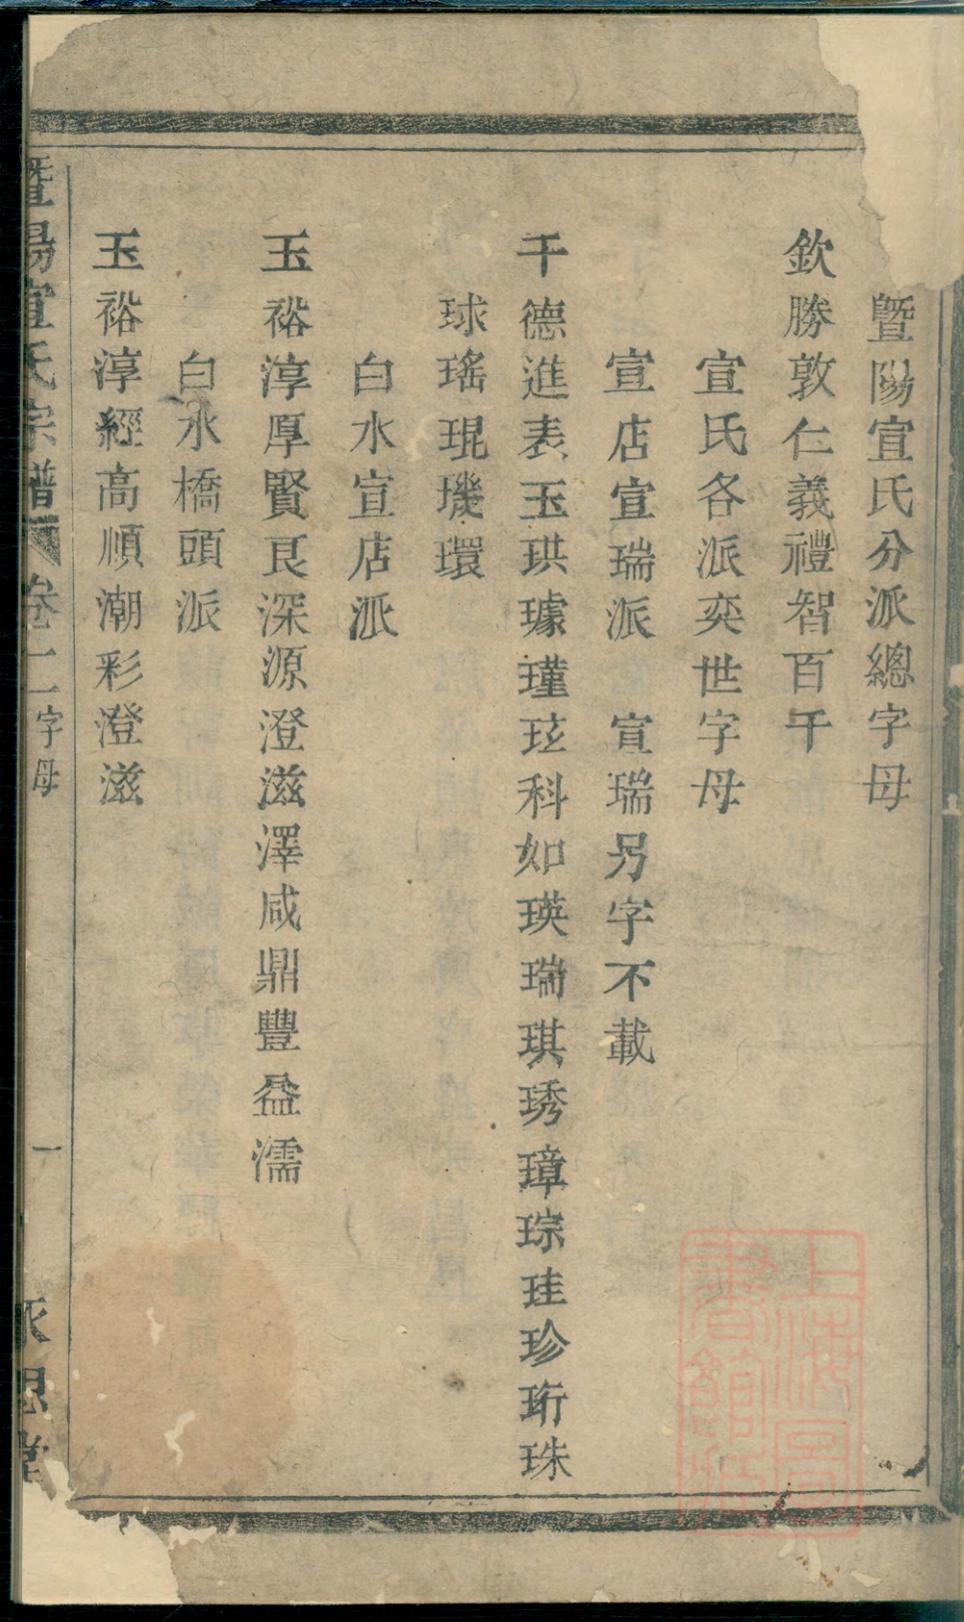 暨陽宣氏分派總字母
欽勝敦仁義禮智百千
宣氏各派奕世字母
宣店宣瑞派　宣瑞另字不載
千德進表玉珙璩瑾玹科如瑛瑞琪琇璋琮珪珍珩珠
球瑤琨璣環
白水宣店派
玉裕淳厚賢良深源澄滋澤咸鼎豐益濡
白水橋頭派
玉裕淳經高順潮彩澄滋
暨陽宣氏宗譜 卷二 字母 一 永思堂
上海圖書館藏